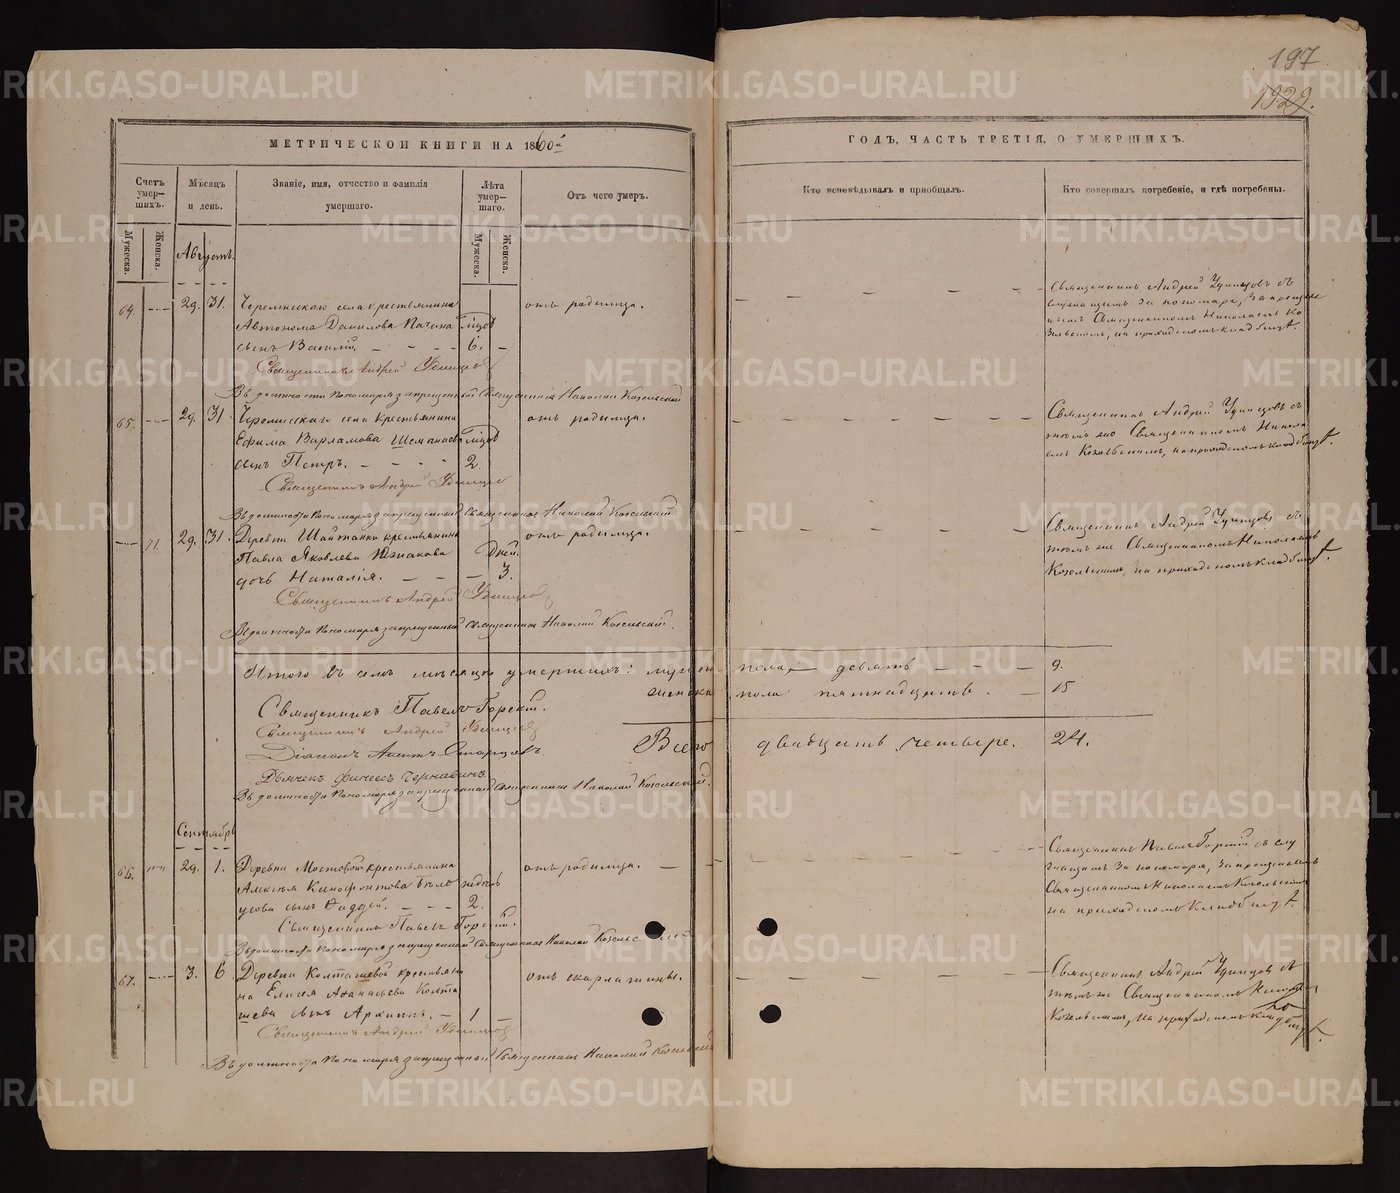 197
1929.
МЕТРИЧЕСКОЙ КНИГИ НА 1860й
ГОДЪ, ЧАСТЬ ТРЕТІЯ, О УМЕРШИХЪ.
Счетъ умер-шихъ.
Мѣсяцъ и день.
Званіе, имя, отчество и фамилія умершаго.
Лѣта умер-шаго.
Отъ чего умеръ.
Кто исповѣдывалъ и пріобщалъ.
Кто совершалъ погребеніе, и гдѣ погребены.
Мужеска.
Женска.
Мужеска.
Женска.
Августъ.
64. 29. 31. Черемисскаго села крестьянина отъ родимца. Священникъ Андрей Удинцовъ съ
Автонома Данилова
сынъ Василій. 6.
Священникъ Андрей Удинцовъ
Въ должности Пономаря запрещенный Священникъ Николай Козельскій
65. 29. 31. Черемисскаго села крестьянина отъ родимца. Священникъ Андрей Удинцовъ съ
Ефима Варламова тѣмъ же Священникомъ Никола
сынъ Петръ. 2. емъ Козельскимъ, на приходскомъ кладбищѣ.
Священникъ Андрей Удинцовъ
Въ должности Пономаря запрещенный Священникъ Николай Козельскій
71. 29. 31. Деревни Шайтанки крестьянина отъ родимца. Священникъ Андрей Удинцовъ съ
Павла Яковлева Дней. тѣмъ же Священникомъ Николаемъ
дочь Наталія. 3. Козельскимъ, на приходскомъ кладбищѣ.
Священникъ Андрей Удинцовъ
Въ должности Пономаря запрещенный Священникъ Николай Козельскій.
Итого въ семъ мѣсяцѣ умершихъ: мужеска пола девять 9.
женска пола пятнадцать. 15
Священникъ Павелъ Горскій.
Священникъ Андрей Удинцовъ
Всего двадцать четыре. 24.
Діаконъ Старцовъ
Дьячекъ Финеесъ Чернавинъ
Въ должности Пономаря запрещенный Священникъ Николай Козельскій.
Сентябрь
66. 29. 1. Деревни Мостовой крестьянина отъ родимца. Священникъ Павелъ Горскій съ слу
Алексѣя Ксенофонтова
сынъ Фаддей. 2.
на приходскомъ кладбищѣ.
Священникъ Павелъ Горскій.
Въ должности Пономаря запрещенный Священникъ Николай Козельскій
67. 3. 6 Деревни Колташевой крестьяни отъ скарлатины. Священникъ Андрей Удинцовъ съ
на Елисея Аѳанасьева Колта тѣмъ же Священникомъ
шева сынъ Архиппъ. 1 Козельскимъ, на приходскомъ кладбищѣ.
Священникъ Андрей Удинцовъ
Въ должности Пономаря запрещенный Священникъ Николай Козельскій
METRIKI.GASO-URAL.RU